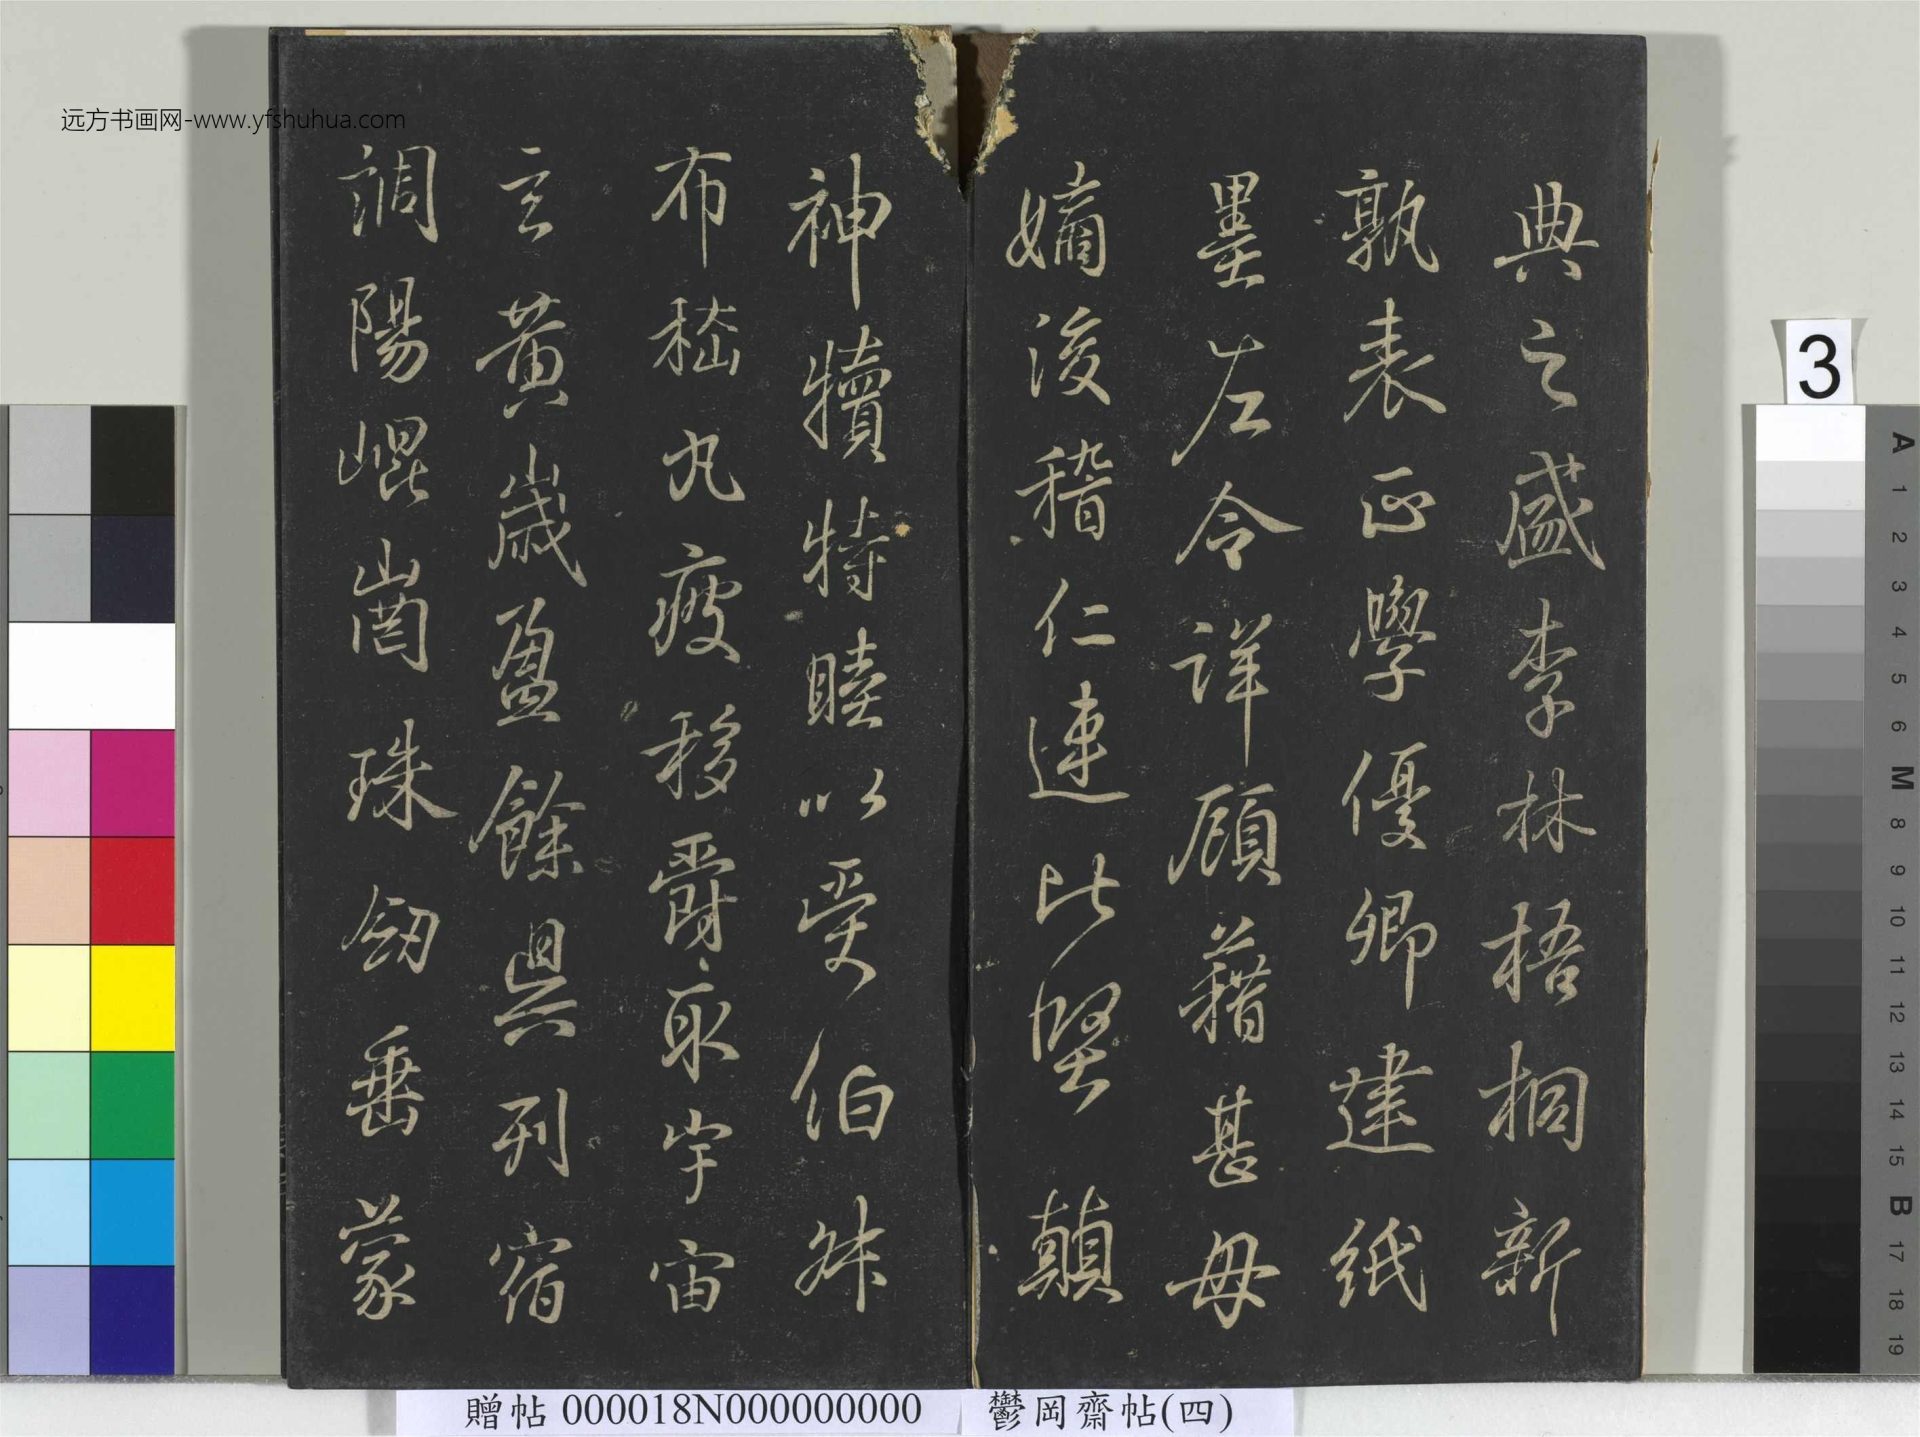 远方书画网-www.yfshuhua.com
典之盛李林梧桐新
孰表正學優卿建紙
墨左令詳顧藉甚毋
嫡後稽仁連比堅顛
神犢特睦以受伯叔
布嵇丸疲移爵取宇宙
玄黃歲盈餘具列宿
調陽崐崗珠劒垂蒙
3
A
1
2
3
4
5
6
M
8
9
10
11
12
13
14
15
B
17
18
19
贈帖 000018N000000000
鬱岡齋帖(四)